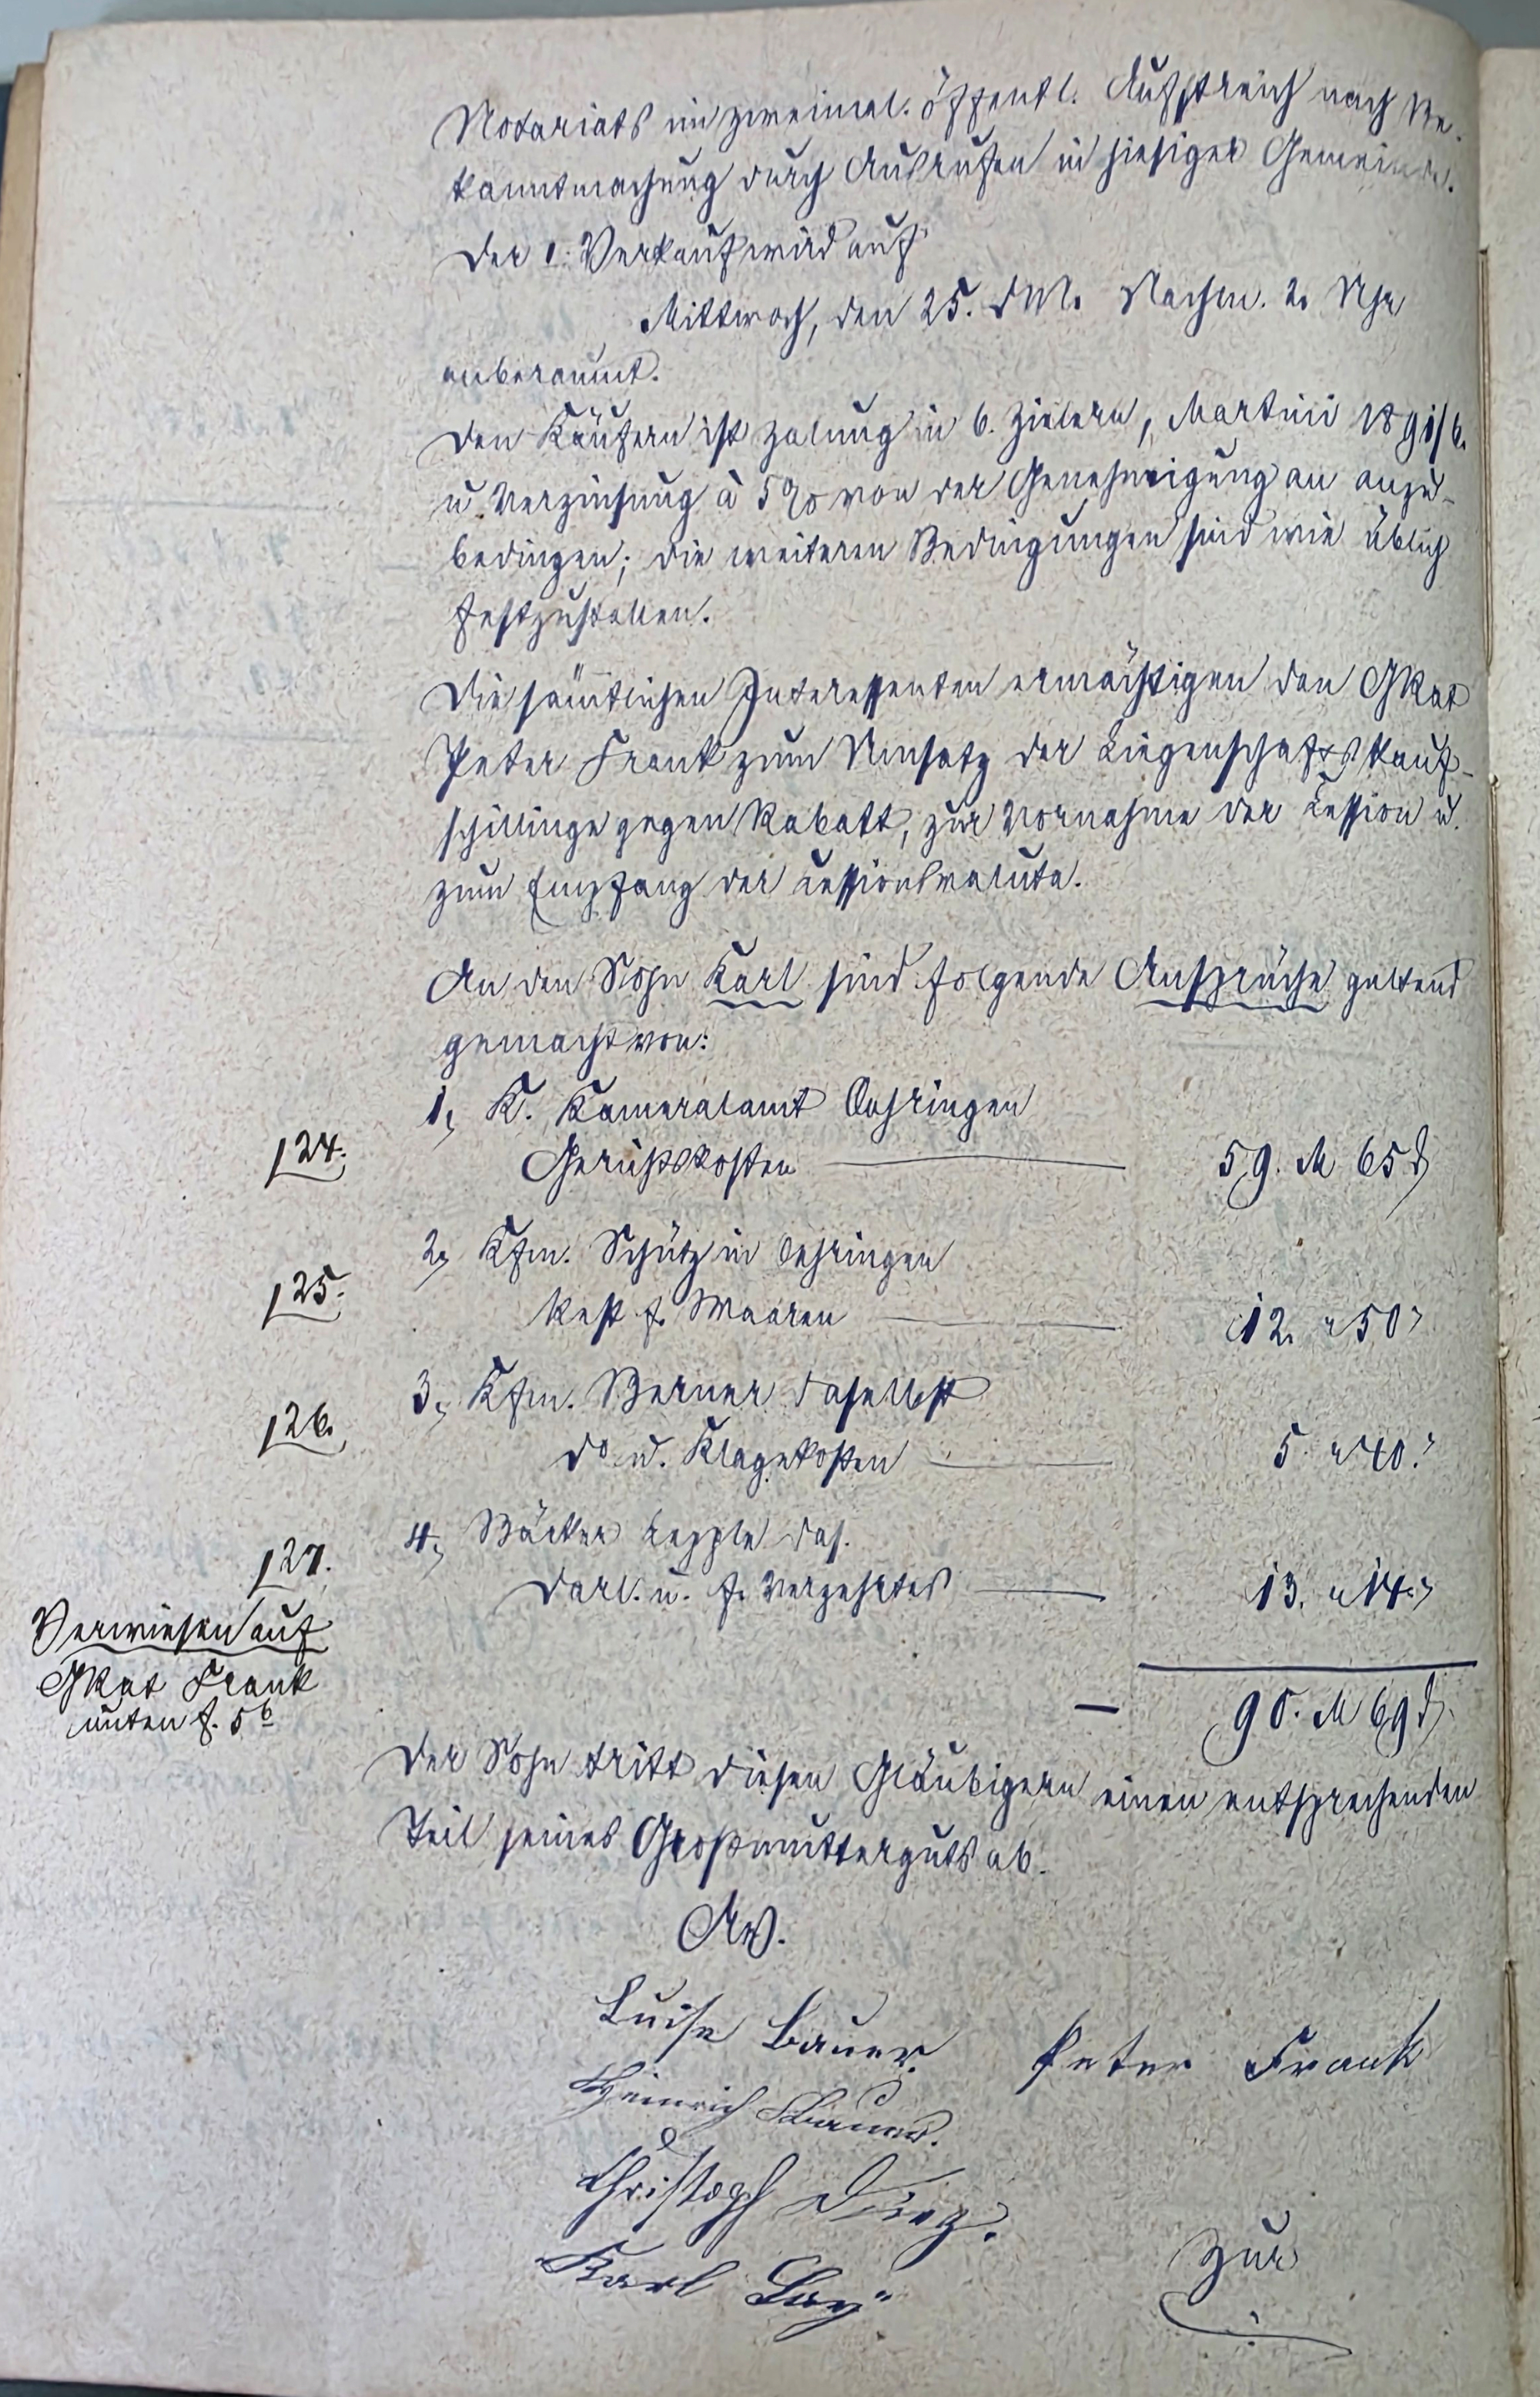 Notariats im zweimal. öffentl. Aufstreich nach Be-
kanntmachung durch Ausrufen in hiesiger Gemeinde.
Der 1. Verkauf wird auf
Mittwoch, den 25. d.M. Nachm. 2. Uhr
anberaumt.
Den Käufern ist Zalung in 6. Zielern, Martini 1891/6.
u. Verzinsung à 5% von der Genehmigung an anzu-
bedingen; die weiteren Bedingungen sind wie üblich
festzustellen.
Die sämtlichen Interessenten ermächtigen den GRat
Peter Frank zum Umsatz der Liegenschaftskauf-
schillinge gegen Rabatt, zur Vornahme der Cession u.
zum Empfang der Cessionsvaluta.
An den Sohn Karl sind folgende Ansprüche geltend
gemacht von:
1, K. Kameralamt Oehringen
124. Gerichtskosten 59. M 65 ₰
2, Kfm. Schütz in Oehringen
125. Rest f. Waaren 12. " 50 "
3, Kfm. Berner daselbst
126. do u. Klagekosten 5. " 40 "
4, Bäcker Lepple das.
127. Darl. u. f. Verzehrtes 13. " 14. "
Verwiesen auf
GRat Frank
unten f. 5b
— 90. M 69 ₰.
Der Sohn tritt diesen Gläubigern einen entsprechenden
Teil seines Großmutterguts ab.
Luise Bauer. Peter Frank
Heinrich Bauer.
Christoph
Karl
Zur